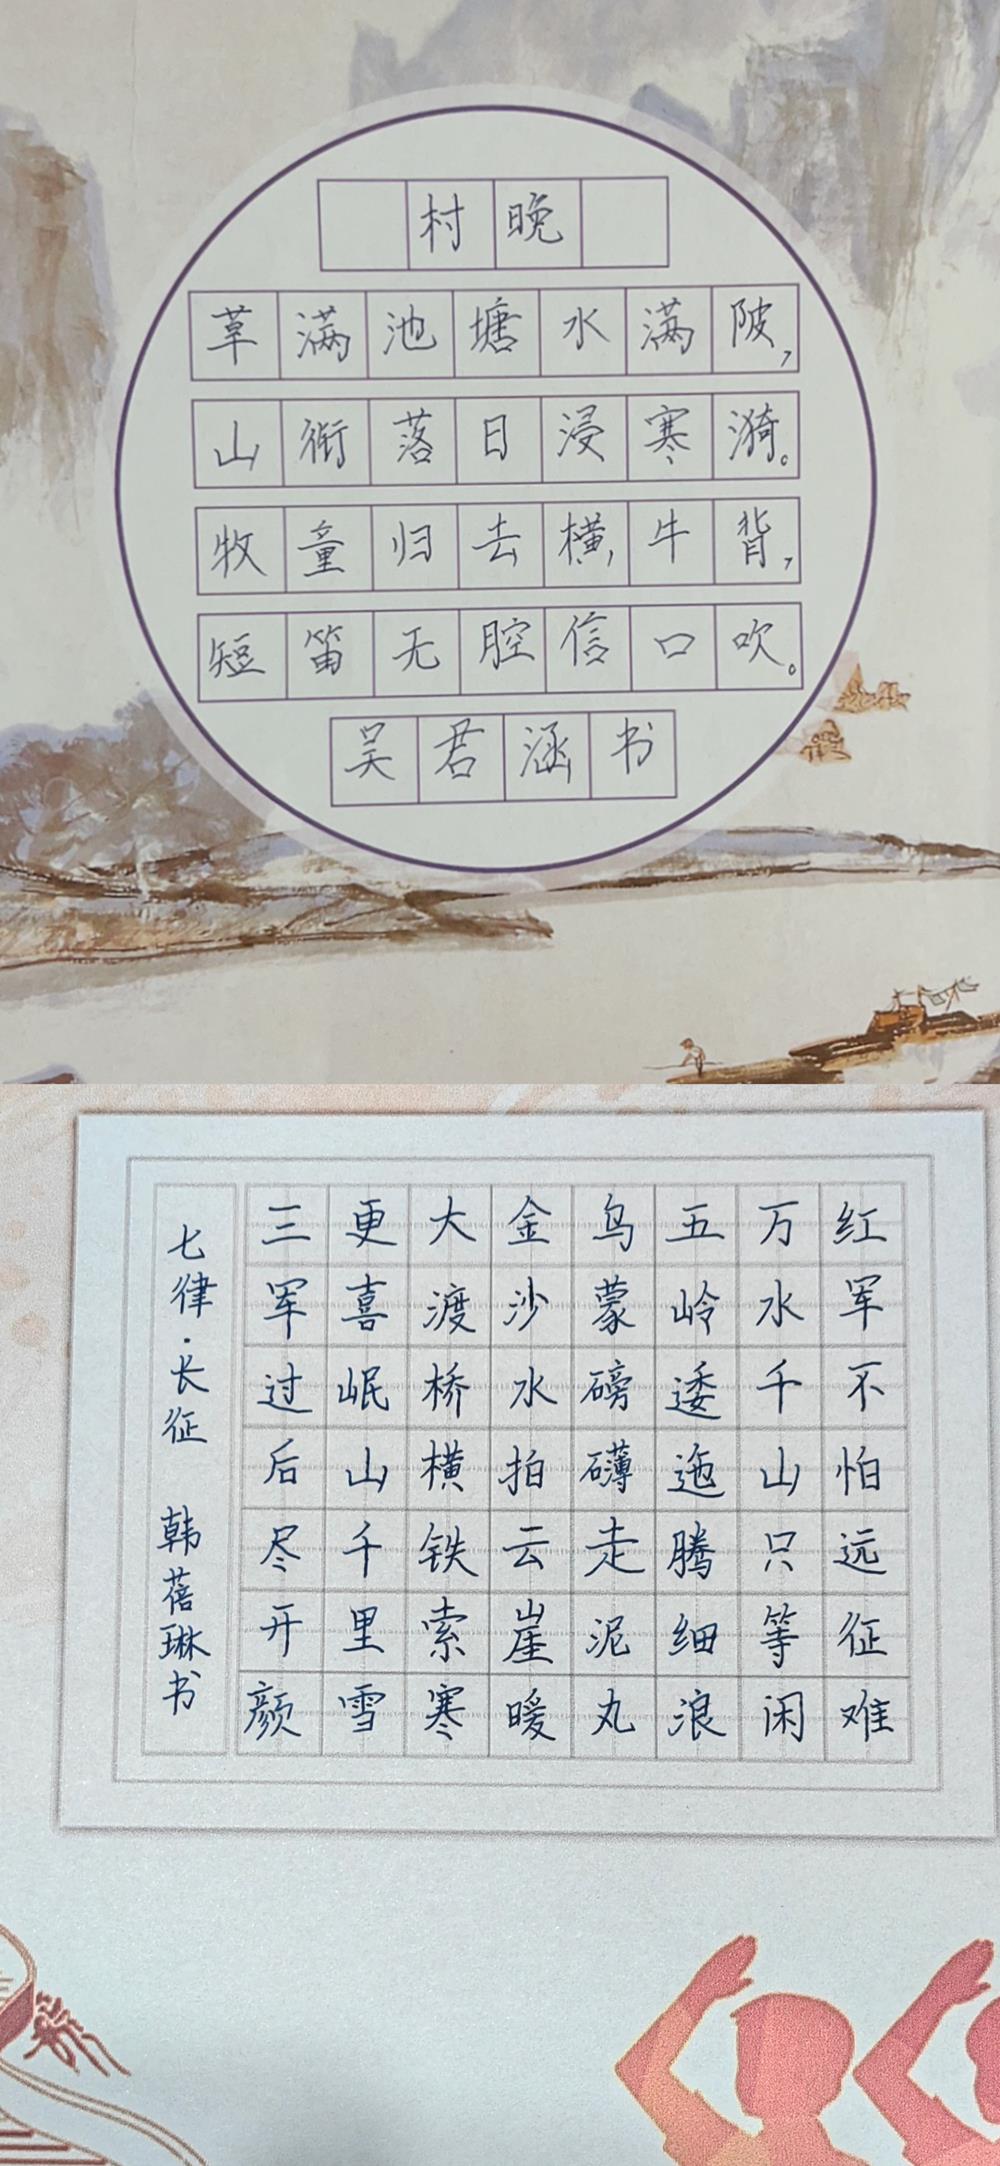 村晚
草满池塘水满陂，
山衔落日浸寒漪。
牧童归去横牛背，
短笛无腔信口吹。
吴君涵书
红军不怕远征难
万水千山只等闲
五岭逶迤腾细浪
乌蒙磅礴走泥丸
金沙水拍云崖暖
大渡桥横铁索寒
更喜岷山千里雪
三军过后尽开颜
七律·长征 韩蓓琳书